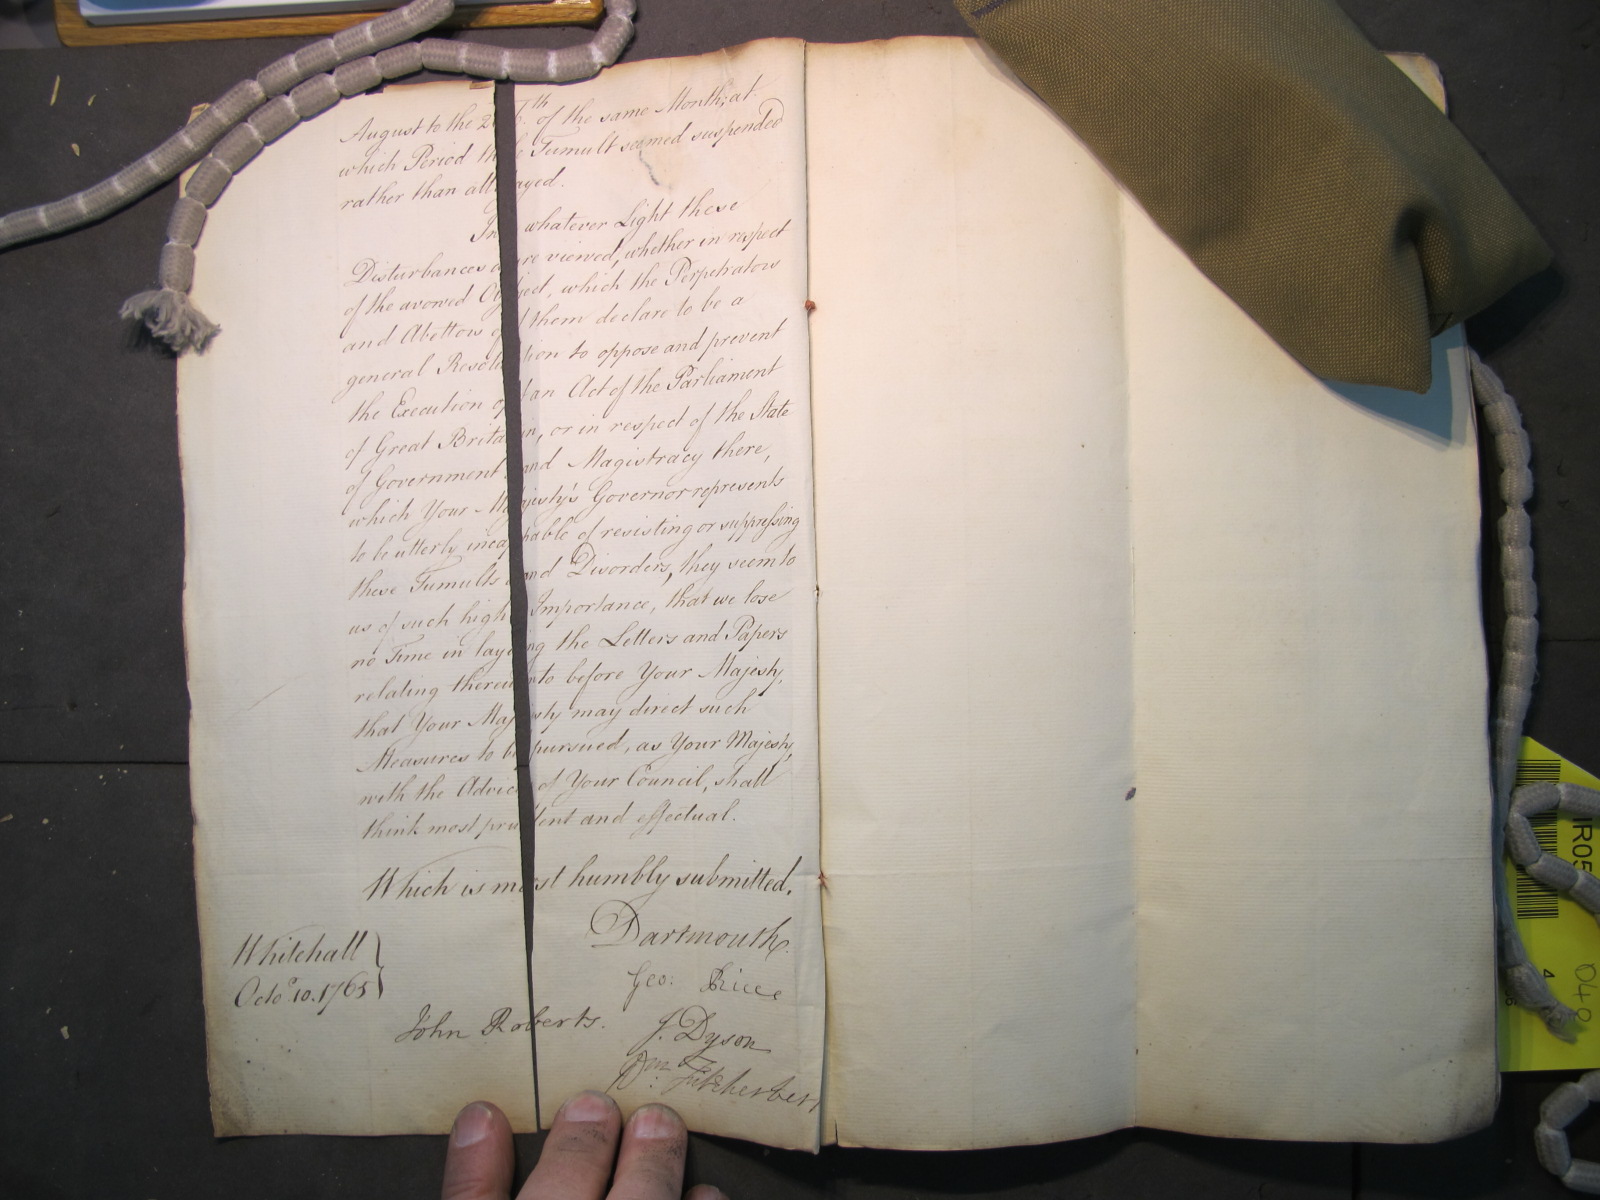 August to the 26th. of the same Month; at
which Period the Tumult seemed suspended
rather than allayed.
In whatever Light these
Disturbances are viewed, whether in respect
of the avowed Object, which the Perpetrators
and Abettors of them declare to be a
general Resolution to oppose and prevent
the Execution of an Act of the Parliament
of Great Britain, or in respect of the State
of Government and Magistracy there,
which Your Majesty's Governor represents
to be utterly incapable of resisting or suppressing
these Tumults and Disorders, they seem to
us of such high Importance, that we lose
no Time in laying the Letters and Papers
relating thereunto before Your Majesty,
that Your Majesty may direct such
Measures to be pursued, as Your Majesty,
with the Advice of Your Council, shall
think most prudent and effectual.
Which is most humbly submitted.
Dartmouth.
Whitehall
Octo. 10. 1765
Geo: Rice
John Roberts.
J. Dyson
Wm: Fitzherbert
IR05
4
049